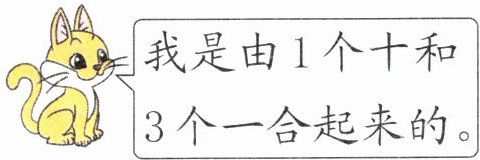 我是由1个十和
3个一合起来的。